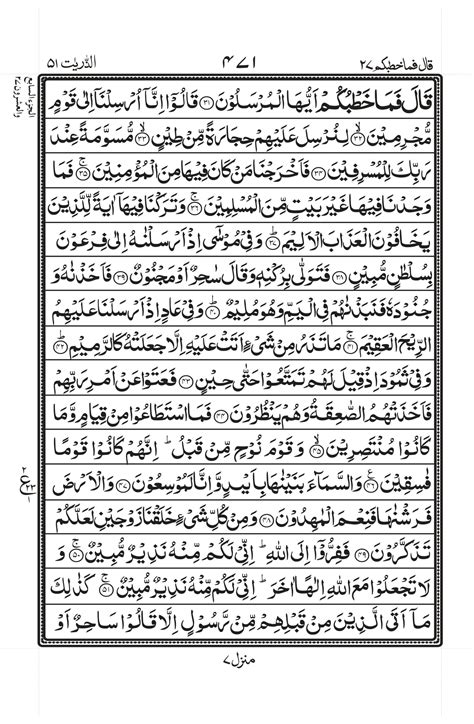 قال فماخطبکم ۲۷ ۴۷۱ الذّٰریٰت ۵۱
الجزء السابع والعشرون ۲۷
قَالَ فَمَا خَطْبُكُمْ اَيُّهَا الْمُرْسَلُوْنَ ۝۳۱ قَالُوْۤا اِنَّاۤ اُرْسِلْنَاۤ اِلٰى قَوْمٍ
مُّجْرِمِيْنَ ۝۳۲ لِنُرْسِلَ عَلَيْهِمْ حِجَارَةً مِّنْ طِيْنٍ ۝۳۳ مُّسَوَّمَةً عِنْدَ
رَبِّكَ لِلْمُسْرِفِيْنَ ۝۳۴ فَاَخْرَجْنَا مَنْ كَانَ فِيْهَا مِنَ الْمُؤْمِنِيْنَ ۝۳۵ فَمَا
وَجَدْنَا فِيْهَا غَيْرَ بَيْتٍ مِّنَ الْمُسْلِمِيْنَ ۝۳۶ وَتَرَكْنَا فِيْهَاۤ اٰيَةً لِّلَّذِيْنَ
يَخَافُوْنَ الْعَذَابَ الْاَلِيْمَ ۝۳۷ وَفِيْ مُوْسٰۤى اِذْ اَرْسَلْنٰهُ اِلٰى فِرْعَوْنَ
بِسُلْطٰنٍ مُّبِيْنٍ ۝۳۸ فَتَوَلّٰى بِرُكْنِهٖ وَقَالَ سٰحِرٌ اَوْ مَجْنُوْنٌ ۝۳۹ فَاَخَذْنٰهُ وَ
جُنُوْدَهٗ فَنَبَذْنٰهُمْ فِي الْيَمِّ وَهُوَ مُلِيْمٌ ۝۴۰ وَفِيْ عَادٍ اِذْ اَرْسَلْنَا عَلَيْهِمُ
الرِّيْحَ الْعَقِيْمَ ۝۴۱ مَا تَذَرُ مِنْ شَيْءٍ اَتَتْ عَلَيْهِ اِلَّا جَعَلَتْهُ كَالرَّمِيْمِ ۝۴۲
وَفِيْ ثَمُوْدَ اِذْ قِيْلَ لَهُمْ تَمَتَّعُوْا حَتّٰى حِيْنٍ ۝۴۳ فَعَتَوْا عَنْ اَمْرِ رَبِّهِمْ
فَاَخَذَتْهُمُ الصّٰعِقَةُ وَهُمْ يَنْظُرُوْنَ ۝۴۴ فَمَا اسْتَطَاعُوْا مِنْ قِيَامٍ وَّمَا
كَانُوْا مُنْتَصِرِيْنَ ۝۴۵ وَقَوْمَ نُوْحٍ مِّنْ قَبْلُ ؕ اِنَّهُمْ كَانُوْا قَوْمًا
فٰسِقِيْنَ ۝۴۶ وَالسَّمَآءَ بَنَيْنٰهَا بِاَيْىدٍ وَّاِنَّا لَمُوْسِعُوْنَ ۝۴۷ وَالْاَرْضَ
فَرَشْنٰهَا فَنِعْمَ الْمٰهِدُوْنَ ۝۴۸ وَمِنْ كُلِّ شَيْءٍ خَلَقْنَا زَوْجَيْنِ لَعَلَّكُمْ
تَذَكَّرُوْنَ ۝۴۹ فَفِرُّوْۤا اِلَى اللّٰهِ ؕ اِنِّيْ لَكُمْ مِّنْهُ نَذِيْرٌ مُّبِيْنٌ ۝۵۰ وَ
لَا تَجْعَلُوْا مَعَ اللّٰهِ اِلٰهًا اٰخَرَ ؕ اِنِّيْ لَكُمْ مِّنْهُ نَذِيْرٌ مُّبِيْنٌ ۝۵۱ كَذٰلِكَ
مَاۤ اَتَى الَّذِيْنَ مِنْ قَبْلِهِمْ مِّنْ رَّسُوْلٍ اِلَّا قَالُوْا سَاحِرٌ اَوْ
منزل ۷